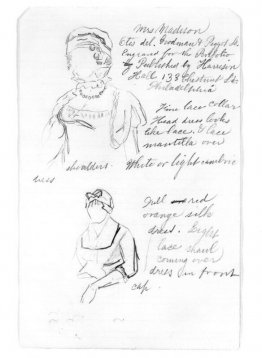 Mrs Madison
Otis del. Goodman & Piggot Sc.
Engraved for the Portfolio
by Published by Harrison
Hall 133 Chestnut St.
Philadelphia
Fine lace collar
Head dress looks
like lace. Lace
mantilla over
shoulders. White or light cambric
dress
Full red
orange silk
dress. Light
lace shawl
coming over
dress in front
cap.